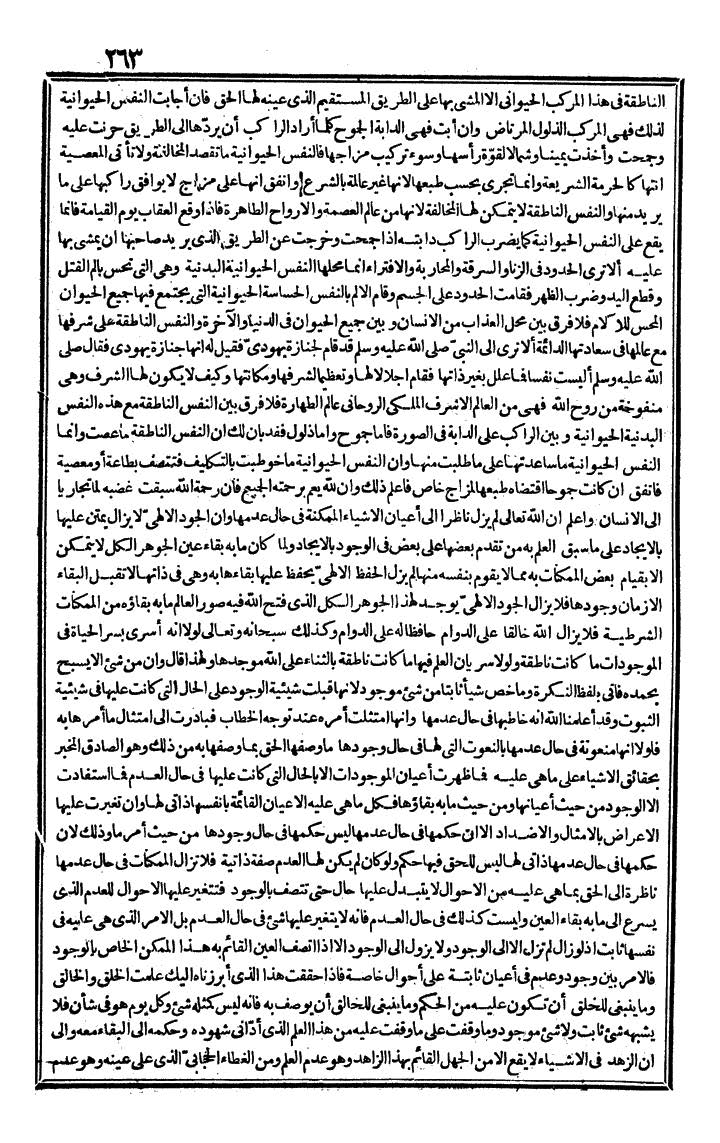 ٢٦٣
الناطقة فى هذا المركب الحيوانى الا المشى بها على الطريق المستقيم الذى عينه لها الحق فان أجابت النفس الحيوانية
لذلك فهى المركب الذلول المرتاض وان أبت فهى الدابة الجوح كلما أراد الراكب أن يردها الى الطريق حرنت عليه
وجمحت وأخذت يمينا وشمالا لقوة رأسها وسوء تركيب مزاجها فالنفس الحيوانية ما تقصد المخالفة ولا تأتى المعصية
انتهاكا لحرمة الشريعة وانما تجرى بحسب طبعها لانها غير عالمة بالشرع واتفق انها على مزاج لا يوافق راكبها على ما
يريد منها والنفس الناطقة لا يتمكن لها المخالفة لانها من عالم العصمة والارواح الطاهرة فاذا وقع العقاب يوم القيامة فانما
يقع على النفس الحيوانية كما يضرب الراكب دابته اذا جمحت وخرجت عن الطريق الذى يريد صاحبها ان يمشى بها
عليه ألا ترى الحدود فى الزنا والسرقة والمحاربة والافتراء انما محلها النفس الحيوانية البدنية وهى التى تحس بالم القتل
وقطع اليد وضرب الظهر فقامت الحدود على الجسم وقام الالم بالنفس الحساسة الحيوانية التى يجتمع فيها جميع الحيوان
المحس للآلام فلا فرق بين محل العذاب من الانسان وبين جميع الحيوان فى الدنيا والآخرة والنفس الناطقة على شرفها
مع عالمها فى سعادتها الدائمة ألا ترى الى النبى صلى الله عليه وسلم قد قام لجنازة يهودى فقيل له انها جنازة يهودى فقال صلى
الله عليه وسلم أليست نفسا فما علل بغير ذاتها فقام اجلالا لها وتعظيما لشرفها ومكانتها وكيف لا يكون لها الشرف وهى
منفوخة من روح الله فهى من العالم الاشرف الملكى الروحانى عالم الطهارة فلا فرق بين النفس الناطقة مع هذه النفس
البدنية الحيوانية وبين الراكب على الدابة فى الصورة فاما جموح واما ذلول فقد بان لك ان النفس الناطقة ما عصت وانما
النفس الحيوانية ما ساعدتها على ما طلبت منها وان النفس الحيوانية ما خوطبت بالتكليف فتتصف بطاعة أو معصية
فاتفق ان كانت جموحا اقتضاه طبعها لمزاج خاص فاعلم ذلك وان الله يعم برحمته الجميع فان رحمة الله سبقت غضبه لما تجاريا
الى الانسان واعلم ان الله تعالى لم يزل ناظرا الى أعيان الاشياء الممكنة فى حال عدمها وان الجود الالهى لا يزال يمتن عليها
بالايجاد على ما سبق العلم به من تقدم بعضها على بعض فى الوجود بالايجاد ولما كان ما به بقاء عين الجوهر الكل لا يتمكن
الا بقيام بعض الممكنات به مما لا يقوم بنفسه منها لم يزل الحفظ الالهى يحفظ عليها بقاءها به وهى فى ذاتها لا تقبل البقاء
الا زمان وجودها فلا يزال الجود الالهى يوجد لهذا الجوهر الكل الذى فتح الله فيه صور العالم ما به بقاؤه من الممكنات
الشرطية فلا يزال الله خالقا على الدوام حافظا له على الدوام وكذلك سبحانه وتعالى لولا انه أسرى بسر الحياة فى
الموجودات ما كانت ناطقة ولولا سريان العلم فيها ما كانت ناطقة بالثناء على الله موجدها ولهذا قال وان من شئ الا يسبح
بحمده فاتى بلفظ النكرة وما خص شيأ ثابتا من شئ موجود لانها قبلت شيئية الوجود على الحال التى كانت عليها فى شيئية
الثبوت وقد أعلمنا الله انه خاطبها فى حال عدمها وانها امتثلت أمره عند توجه الخطاب فبادرت الى امتثال ما أمرها به
فلولا انها منعوتة فى حال عدمها بالنعوت التى لها فى حال وجودها ما وصفها الحق بما وصفها به من ذلك وهو الصادق المخبر
بحقائق الاشياء على ما هى عليه فما ظهرت أعيان الموجودات الا بالحال التى كانت عليها فى حال العدم فما استفادت
الا الوجود من حيث أعيانها ومن حيث ما به بقاؤها فكل ما هى عليه الاعيان القائمة بانفسها ذاتى لها وان تغيرت عليها
الاعراض بالامثال والاضداد الا ان حكمها فى حال عدمها ليس حكمها فى حال وجودها من حيث أمر ما وذلك لان
حكمها فى حال عدمها ذاتى لها ليس للحق فيها حكم ولو كان لم يكن لها العدم صفة ذاتية فلا تزال الممكنات فى حال عدمها
ناظرة الى الحق بما هى عليه من الاحوال لا يتبدل عليها حال حتى تتصف بالوجود فتتغير عليها الاحوال للعدم الذى
يسرع الى ما به بقاء العين وليست كذلك فى حال العدم فانه لا يتغير عليها شئ فى حال العدم بل الامر الذى هى عليه فى
نفسها ثابت اذ لو زال لم تزل الا الى الوجود ولا يزول الى الوجود الا اذا اتصف العين القائم به هذا الممكن الخاص بالوجود
فالامر بين وجود وعدم فى أعيان ثابتة على أحوال خاصة فاذا حققت هذا الذى أبرزناه اليك علمت الخلق والخالق
وما ينبغى للخلق أن تكون عليه من الحكم وما ينبغى للخالق أن يوصف به فانه ليس كمثله شئ وكل يوم هو فى شأن فلا
يشبهه شئ ثابت ولا شئ موجود وما وقفت على ما وقفت عليه من هذا العلم الذى أدانى شهوده وحكمه الى البقاء معه والى
ان الزهد فى الاشياء لا يقع الا من الجهل القائم بهذا الزاهد وهو عدم العلم ومن الغطاء الحجابى الذى على عينه وهو عدم